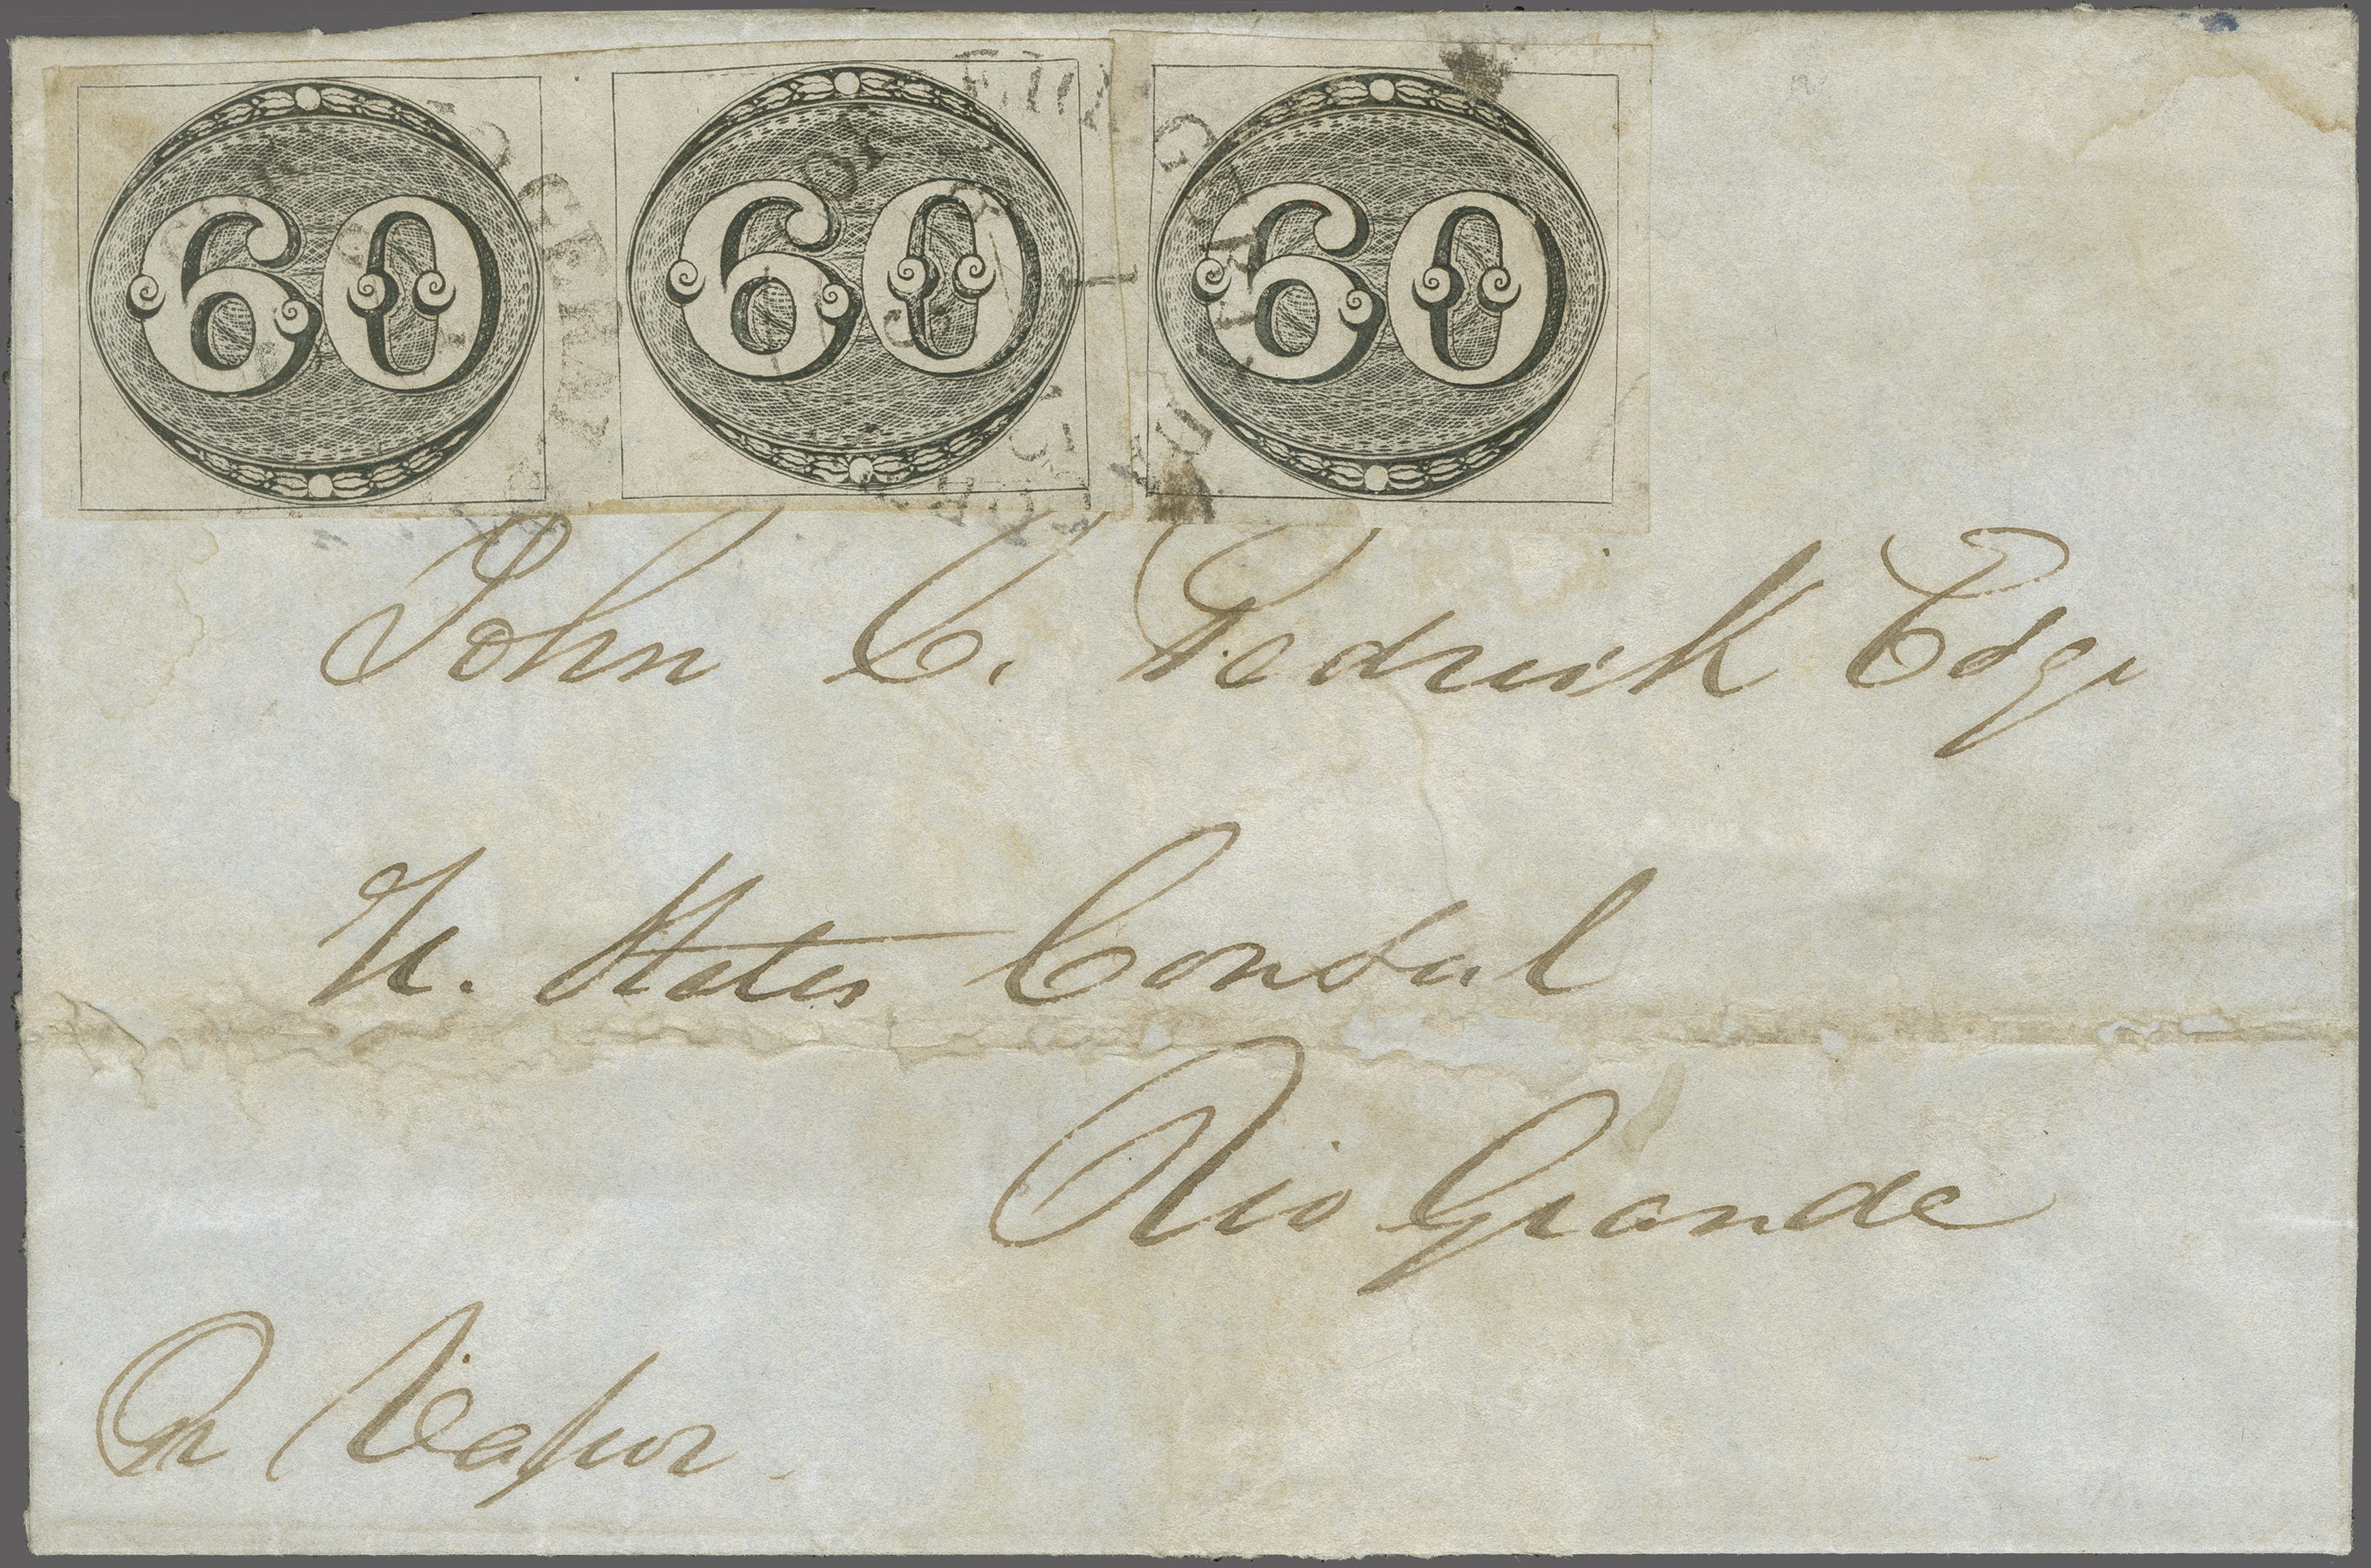 60 60 60
John C. Pedrick Esqr
U. States Consul
Rio Grande
Pr Vapor.